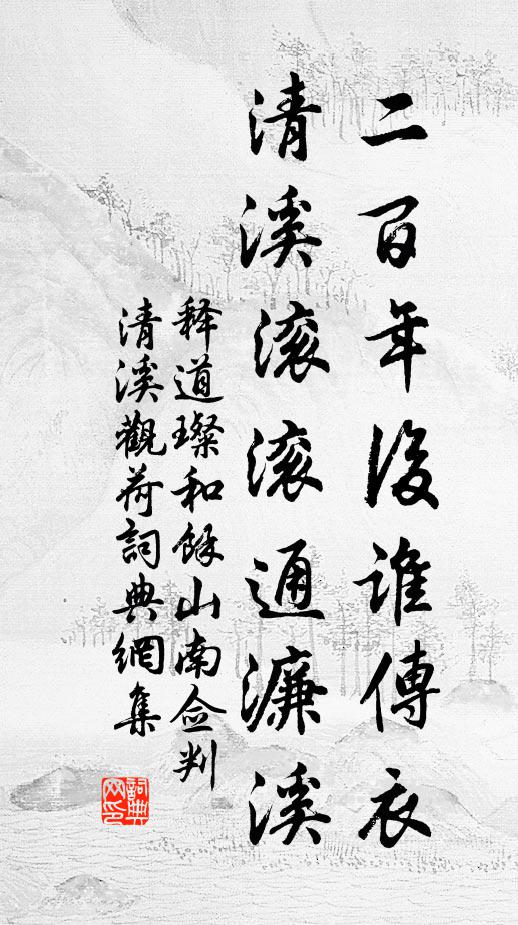 二百年後誰傳衣
清溪滚滚通濂溪
释道璨和餘山南僉判
清溪觀荷詞典網集
詞典網印